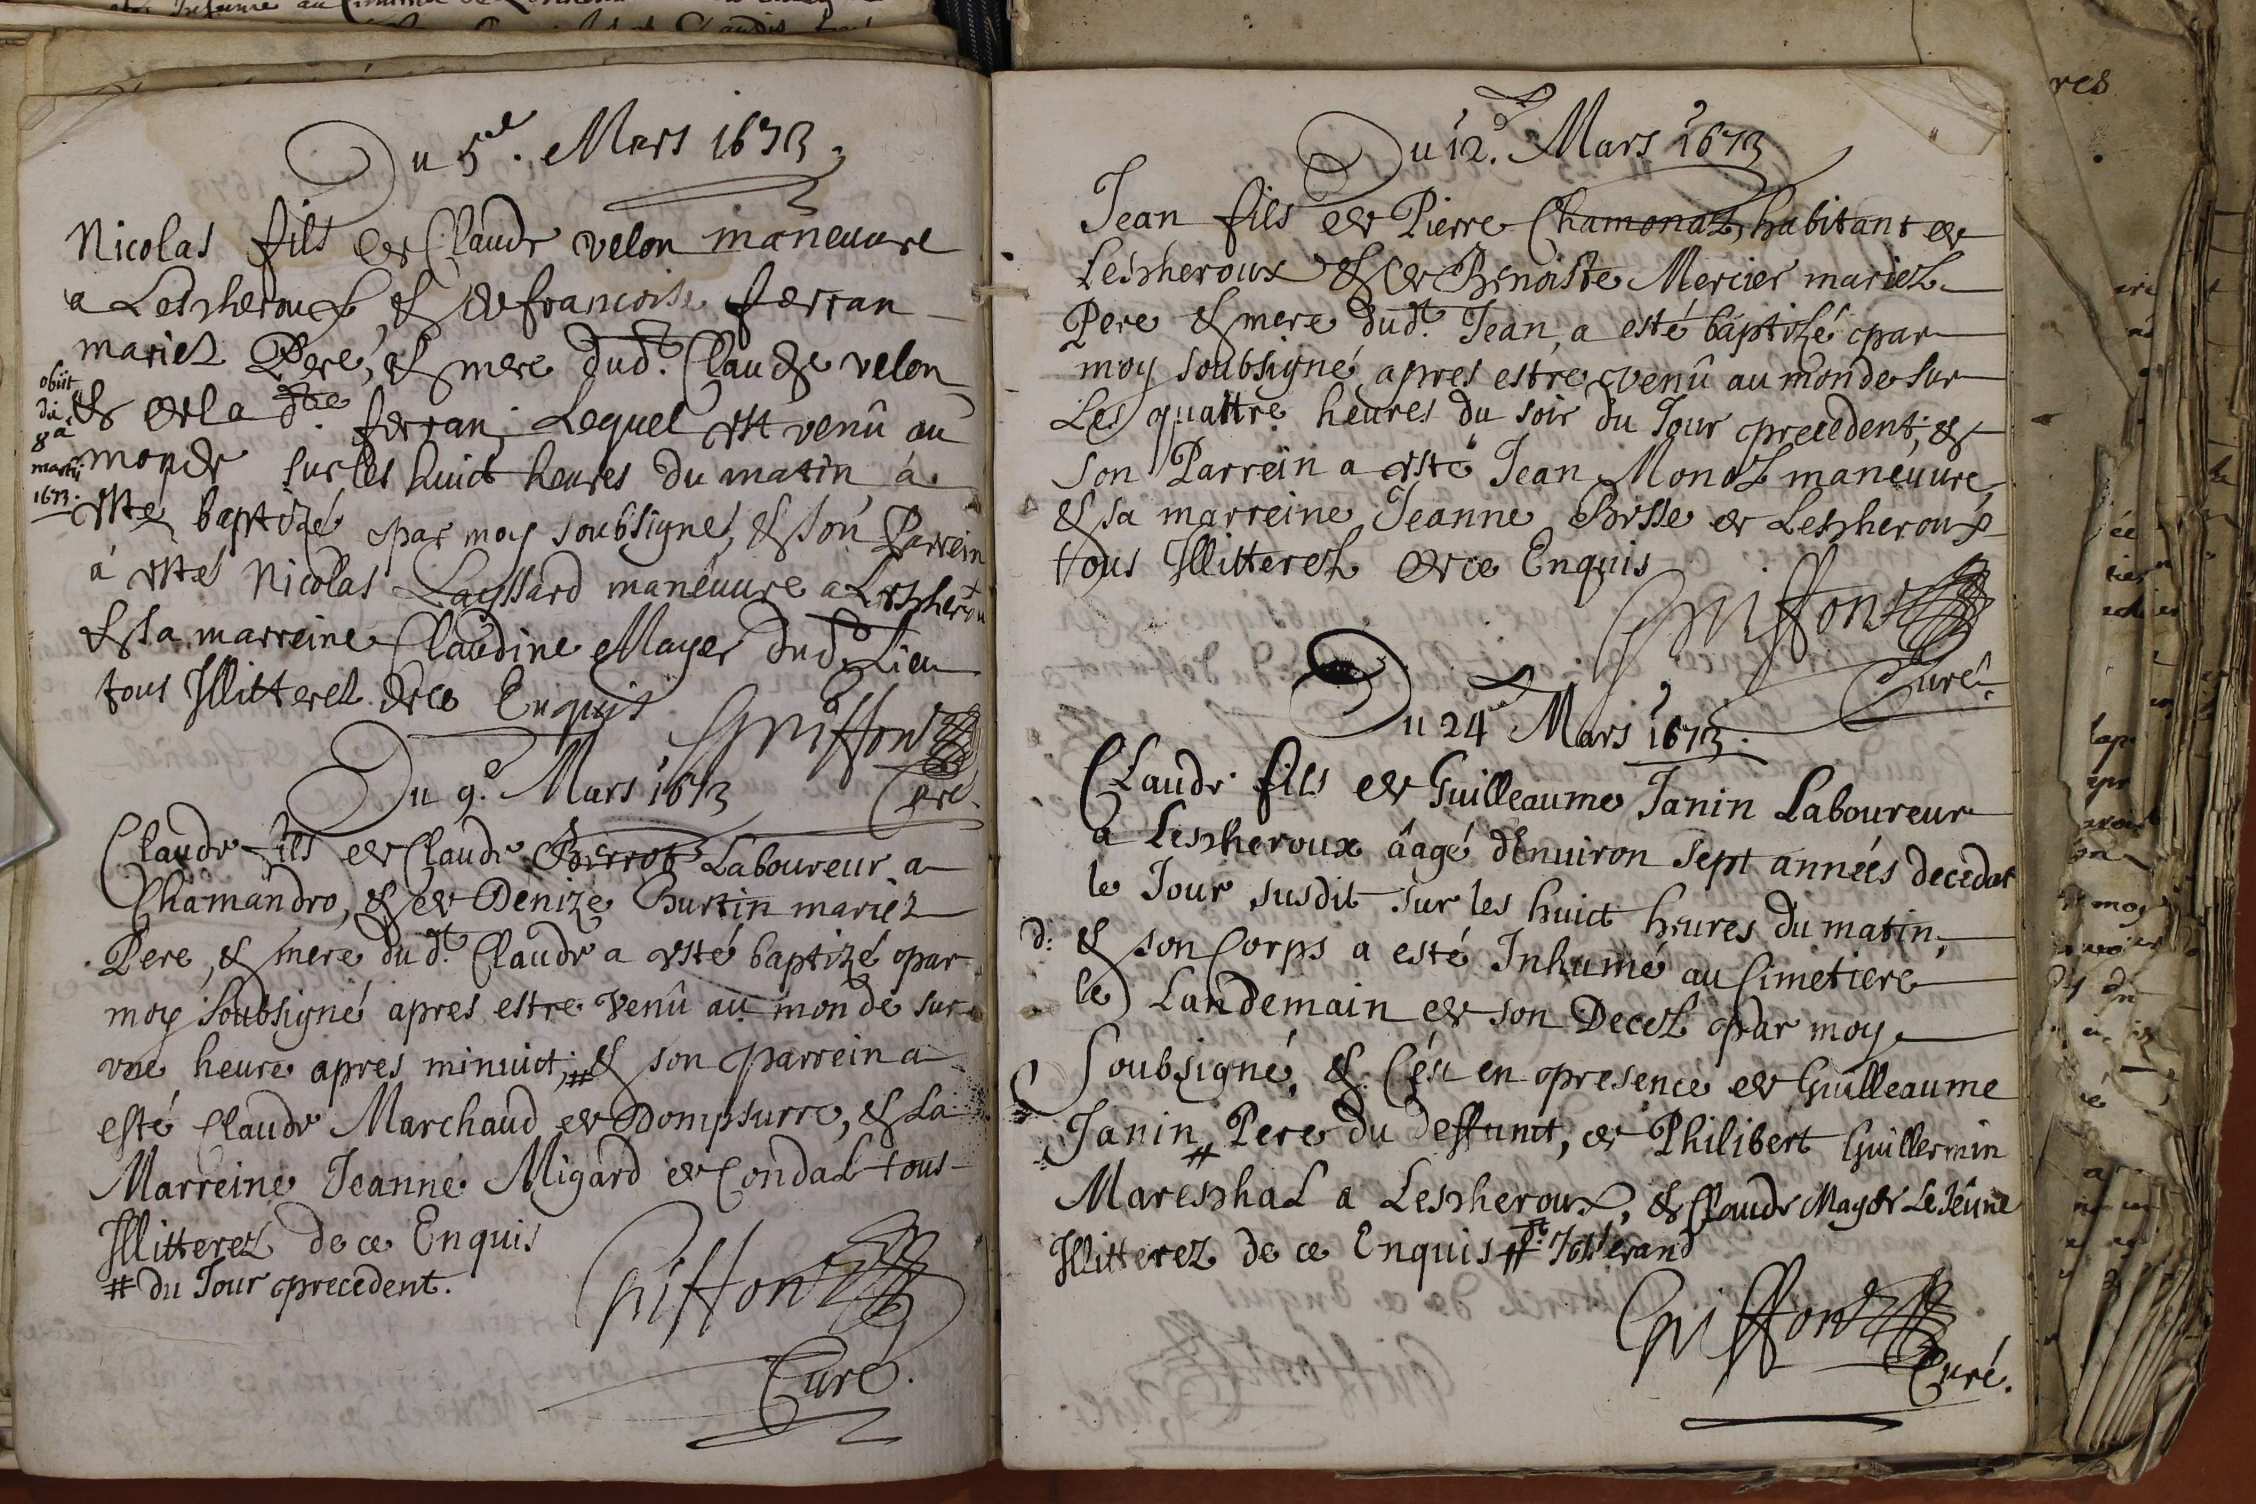 Du 5.e Mars 1673.
Nicolas fils de Claude velon maneuure
a Lescheroux, & de francoise ferran
mariez Pere, & mere dud.t Claude velon
& de la d.te ferran; Lequel est venû au
monde sur les huict heures du matin à
esté baptizé par moy soubsigné, & son Parrein
à esté Nicolas Layssard maneuure a Lescheroux
& sa marreine Claudine Mayer dud.t Lieu
tous Illitterez de ce Enquis Griffon
Curé.
obiit
die
8a
martij
1673.
Du 9.e Mars 1673
Claude fils de Claude Berrod Laboureur a
Chamandro, & de Denize Burtin mariez
Pere, & mere du d.t Claude a esté baptizé par
moy soubsigné apres estre venû au monde sur
vne heure apres minuict; # & son parrein a
esté Claude Marchaud de Dompsurre, & La
Marreine Jeanne Migard de Condal tous
Illitterez de ce Enquis
# du Jour precedent.
Griffon
Curé.
Du 12.e Mars 1673
Jean fils de Pierre Chamonaz, habitant de
Lescheroux & de Benoiste Mercier mariez
Pere & mere dud.t Jean, a esté baptizé par
moy soubsigné apres estre venû au monde sur
Les quattre heures du soir du Jour precedent; &
son Parrein a esté Jean Monoz maneuure
& sa marreine Jeanne Brisse de Lescheroux
tous Illitterez de ce Enquis
Griffon
Curé.
Du 24e Mars 1673.
Claude fils de Guilleaume Janin Laboureur
a Lescheroux âagé d'Enuiron sept années deceda
le Jour susdit sur les huict heures du matin,
d: & son Corps a esté Inhumé au Cimetiere
le Landemain de son Decez par moy
Soubsigné, & Cést en presence de Guilleaume
Janin # Pere du deffunct, de Philibert Guillermin
Mareschal a Lescheroux, & Claude Mayer Le Jeûne
Illitterez de ce Enquis #
Griffon
Curé.